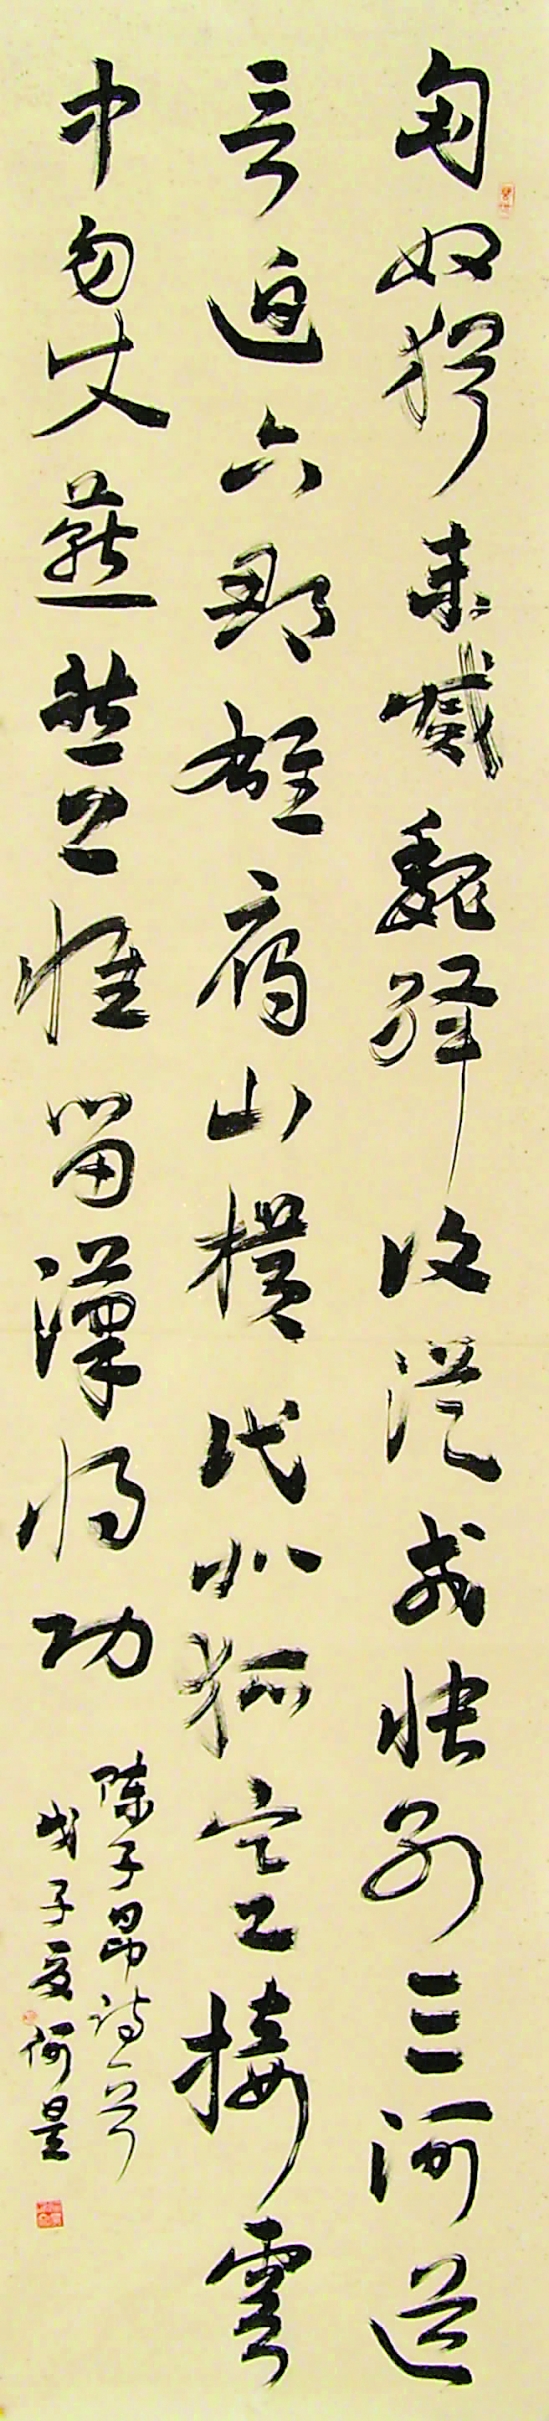 匈奴猶未滅魏絳復從戎悵別三河道
言追六郡雄雁山橫代北狐塞接雲
中勿使燕然上惟留漢將功
陳子昂詩一首
戊子夏何